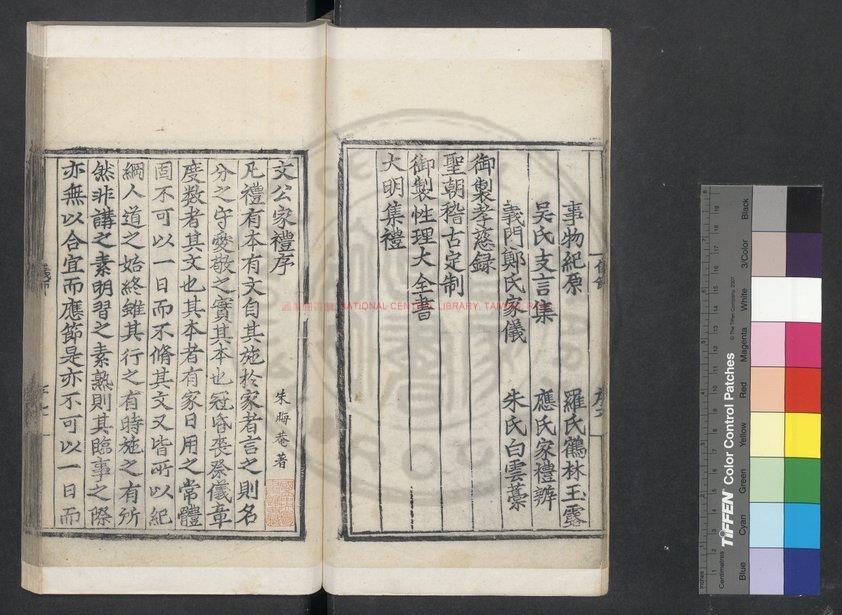 事物紀原 羅氏鶴林玉露
吳氏支言集 應氏家禮辨
義門鄭氏家儀 朱氏白雲藁
御製孝慈録
聖朝稽古定制
御製性理大全書
大明集禮
文公家禮序
朱晦菴著
凡禮有本有文自其施於家者言之則名
分之守愛敬之實其本也冠昏喪祭儀章
度数者其文也其本者有家日用之常體
固不可以一日而不脩其文又皆所以紀
綱人道之始終雖其行之有時施之有所
然非講之素明習之素熟則其臨事之際
亦無以合宜而應節是亦不可以一日而
國家圖書館 NATIONAL CENTRAL LIBRARY, TAIWAN
TIFFEN Color Control Patches
© The Tiffen Company, 2007
Centimetres
Inches
Blue
Cyan
Green
Yellow
Red
Magenta
White
3/Color
Black